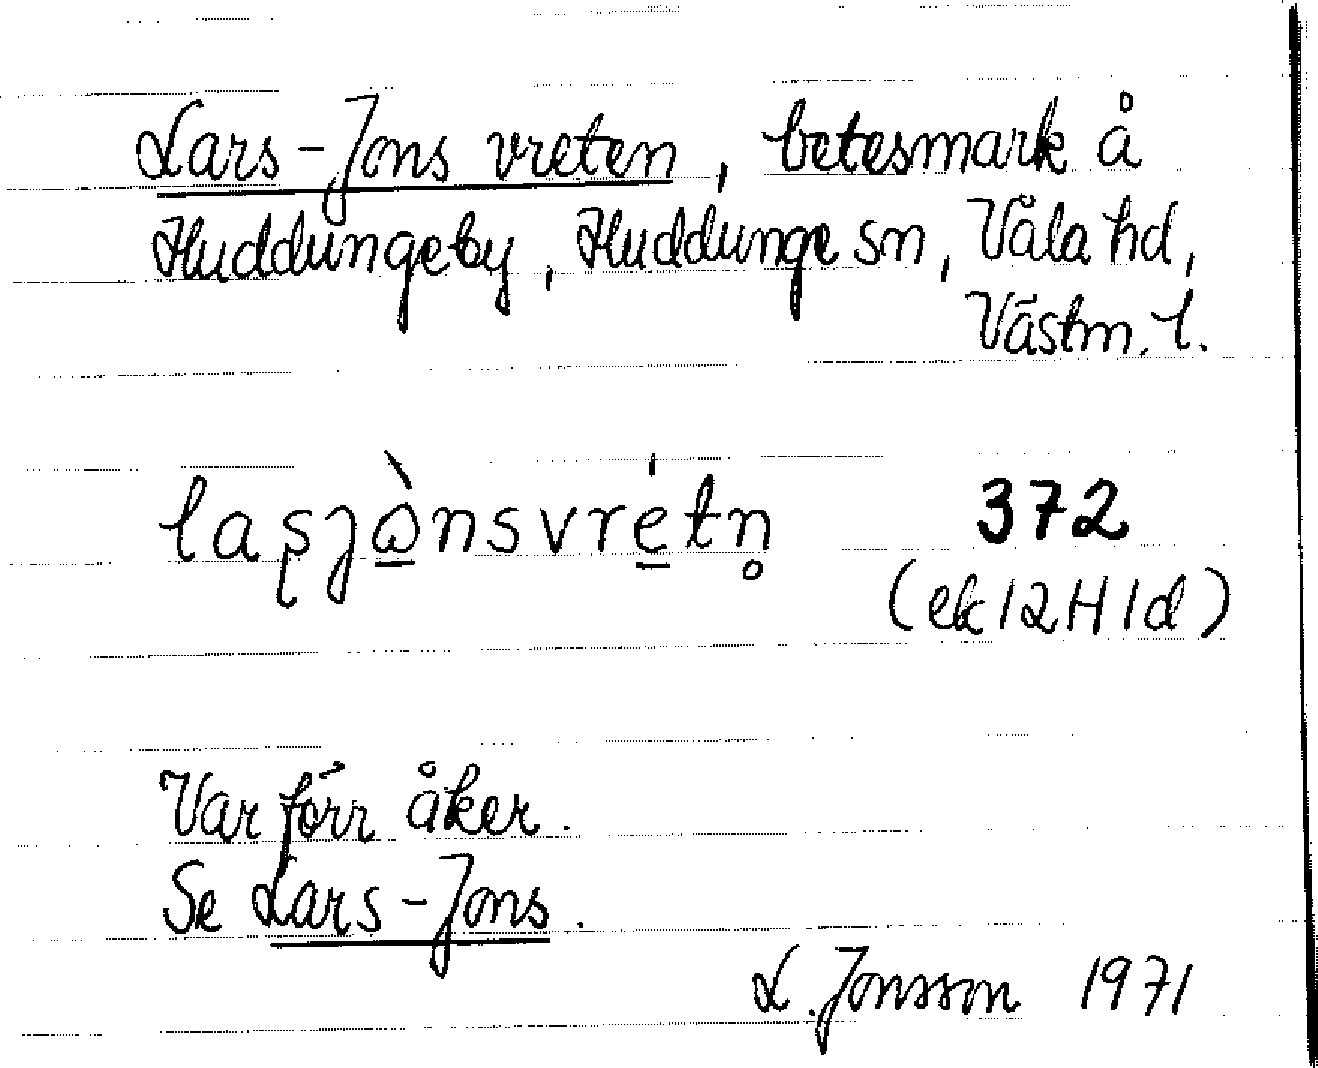 Lars-Jons vreten, betesmark å
Huddungeby, Huddunge sn, Våla hd,
Västm. l.
laʂjὼ̲nsvré̲tn̥ 372
(ek 12H1d)
Var förr åker.
Se Lars-Jons.
L. Jonsson 1971